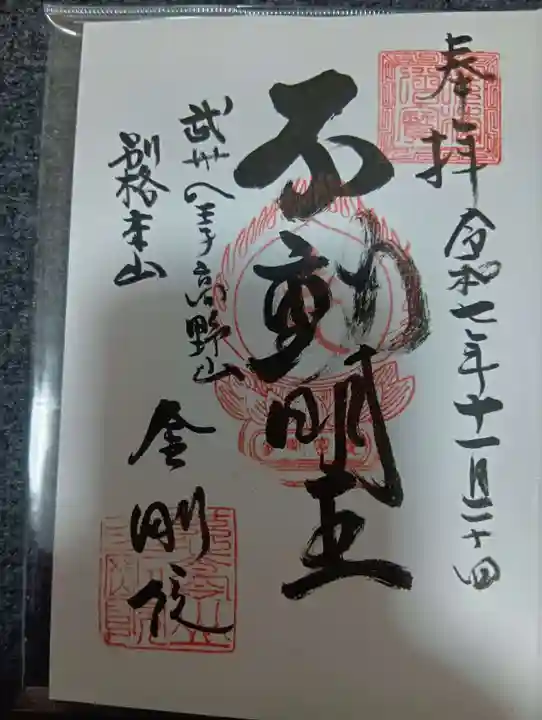 奉拝 令和七年十一月二十四
不動明王
武州八王子高野山
別格本山
金剛院